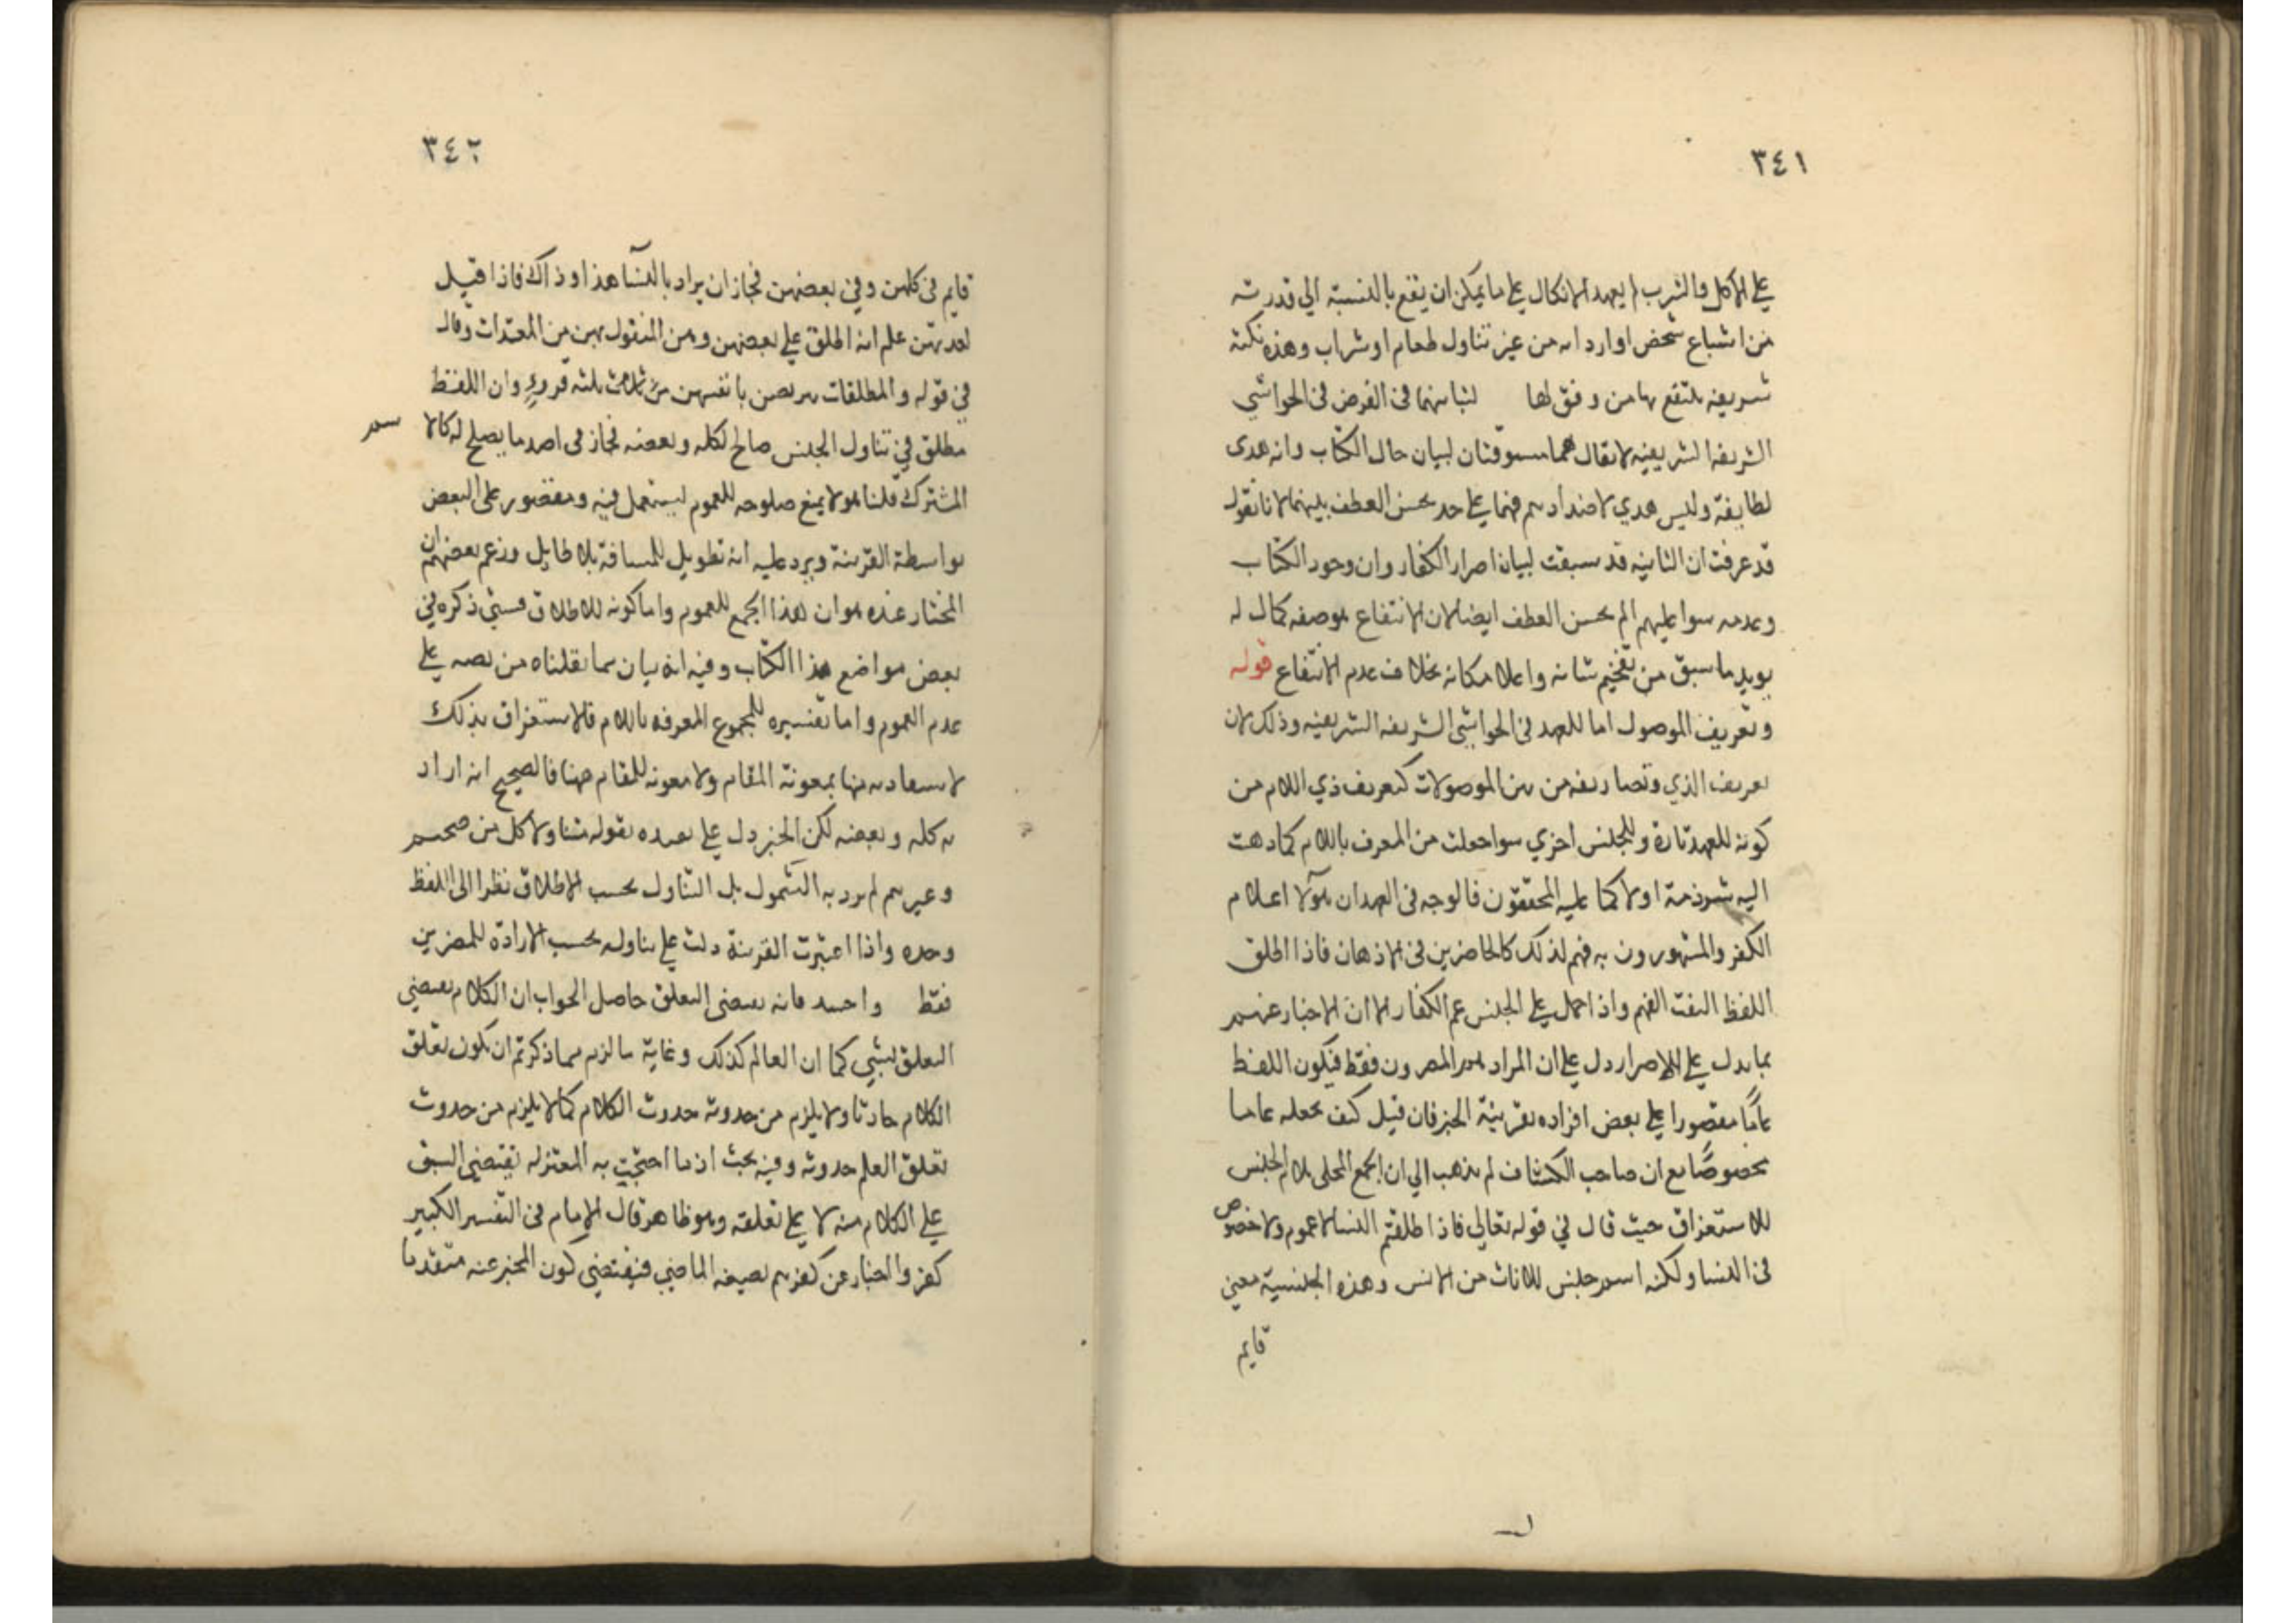 ٣٤١
على الاكل والشرب لم يعهد الاتكال على ما يمكن ان يقع بالنسبة الي قدرته
من اشباع شخص او اروائه من غير تناول طعام او شراب وهذه نكتة
شريفه ينتفع بها من وفق لها لتباينهما فى الغرض فى الحواشي
الشريفه الشريفيه لا يقال هما مسوقتان لبيان حال الكتاب وانه هدى
لطايفة وليس هدي لاضدادهم فهما على حد يحسن العطف بينهما لانا نقول
قد عرفت ان الثانيه قد سبقت لبيان اصرار الكفار وان وجود الكتاب
وعدمه سوا عليهم لم يحسن العطف ايضا لان الانتفاع بوصفه كمال له
يويد ما سبق من تفخيم شانه واعلا مكانه بخلاف عدم الانتفاع قوله
وتعريف الموصول اما للعهد فى الحواشي الشريفه الشريفيه وذلك لان
تعريف الذي وتصاريفه من بين الموصولات كتعريف ذي اللام من
كونه للعهد تارة وللجنس اخري سوا جعلت من المعرف باللام كما ذهبت
اليه شرذمة اولا كما عليه المحققون فالوجه فى العهد ان هولآ اعلام
الكفر والمشهورون به فهم لذلك كالحاضرين فى الاذهان فاذا اطلق
اللفظ التفت الفهم واذا حمل على الجنس عم الكفار الا ان الاخبار عنهم
بما يدل على الاصرار دل على ان المراد هم المصرون فقط فيكون اللفظ
عامًا مقصورا على بعض افراده بقرينة الخبر فان قيل كيف يجعله عاما
مخصوصًا مع ان صاحب الكشاف لم يذهب الي ان الجمع المحلى بلام الجنس
للاستغراق حيث قال في قوله تعالي فاذا طلقتم النسا لا عموم ولا خصوص
فى النسا ولكنه اسم جنس للاناث من الانس وهذه الجنسية معني
قايم
٣٤٢
قايم فى كلهن وفي بعضهن فجاز ان يراد بالنسآ هذا وذاك فاذا قيل
لعدتهن علم انه اطلق علي بعضهن وهن المدخول بهن من المعتدات وقال
في قوله والمطلقات يتربصن بانفسهن ثلثه قروء وان اللفظ
مطلق في تناول الجنس صالح لكله وبعضه فجاز فى احد ما يصلح له كالاسم
المشترك قلنا هو لا يمنع صلوحه للعموم ليستعمل فيه ومقصور على البعض
بواسطة القرينة ويرد عليه انه تطويل للمسافة بلا طايل وزعم بعضهم ان
المختار عنده هو ان هذا الجمع للعموم واما كونه للاطلاق فشي ذكره في
بعض مواضع هذا الكتاب وفيه انه بيان مما نقلناه من نصه على
عدم العموم واما تفسيره للجموع المعرفه باللام فالاستغراق بذلك
لاستفادته منها بمعونة المقام ولا معونه للمقام ههنا فالصحيح انه اراد
به كله وبعضه لكن الخبر دل على تقييده بقوله متناولا كل من صمم
وغيرهم لم يرد به الشمول بل التناول بحسب الاطلاق نظرا الى اللفظ
وحده واذا اعتبرت القرينة دلت على تناوله بحسب الارادة للمصرين
فقط واجيب بانه مقتضى التعلق حاصل الجواب ان الكلام يقتضي
التعلق لشي كما ان العالم كذلك وغاية ما لزم مما ذكرتم ان يكون تعلق
الكلام حادثا ولا يلزم من حدوثه حدوث الكلام كما لا يلزم من حدوث
تعلق العلم حدوثه وفيه بحث اذ ما احتجت به المعتزله يقتضي السبق
على الكلام منه لا على تعلقه وهو ظاهر قال الامام فى التفسير الكبير
كفروا اخبار عن كفرهم بصيغه الماضي فيقتضي كون المخبر عنه متقدما